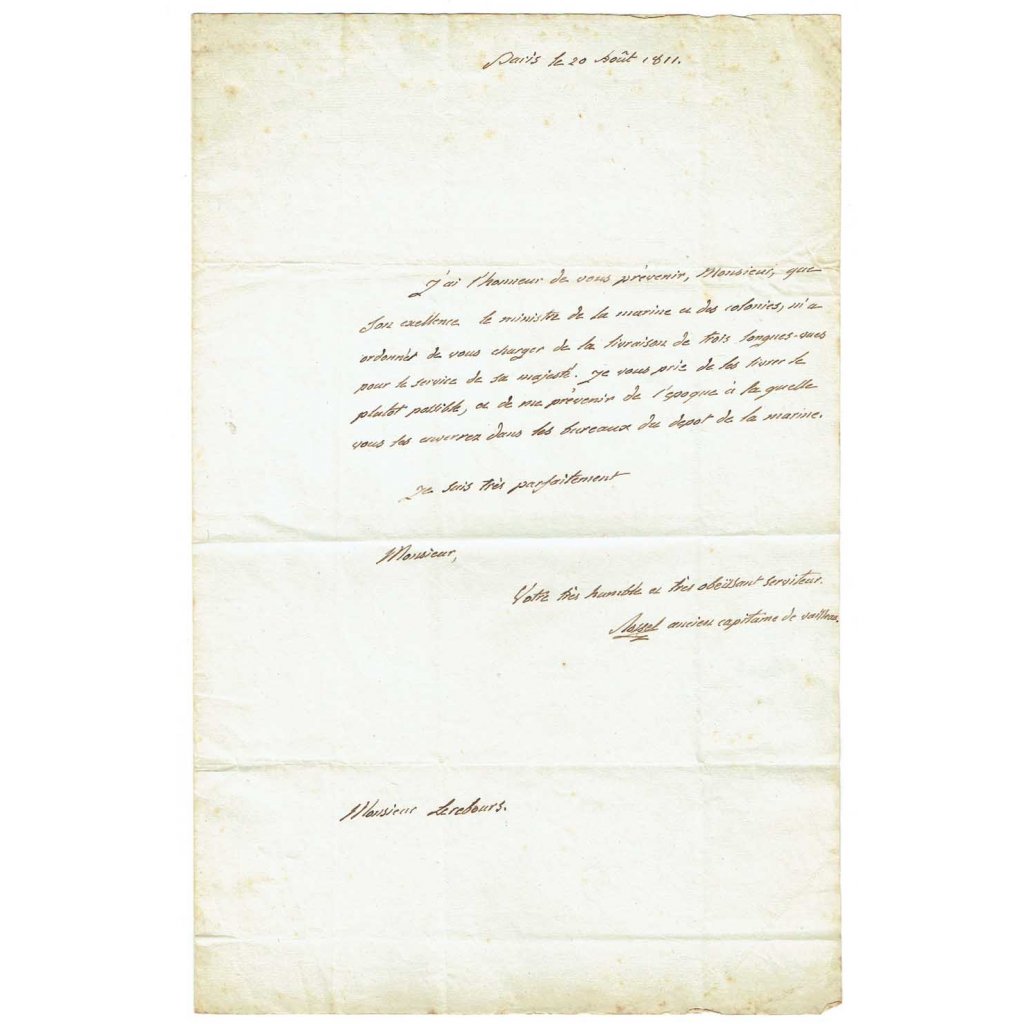 Paris le 20 Août 1811.
J'ai l'honneur de vous prévenir, Monsieur, que
Son exellence le ministre de la marine et des colonies, m'a
ordonnér de vous charger de la livraison de trois longues-vues
pour le service de sa majesté. Je vous prie de les livrer le
plutôt possible, et de me prévenir de l'époque à la quelle
vous les enverrez dans les bureaux du depot de la marine.
Je suis très parfaitement
Monsieur,
Votre très humble et très obéissant serviteur.
ancien capitaine de vaisseau
Monsieur Lerebours.